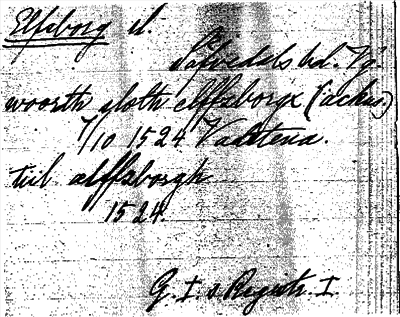 Elfsborg sl.
Säfvedals hd. Vg.
woorth sloth elffzborgx (ackus.)
7/10 1524 Vadstena.
till alffzborgh
1524.
G. I:s Registr. I.